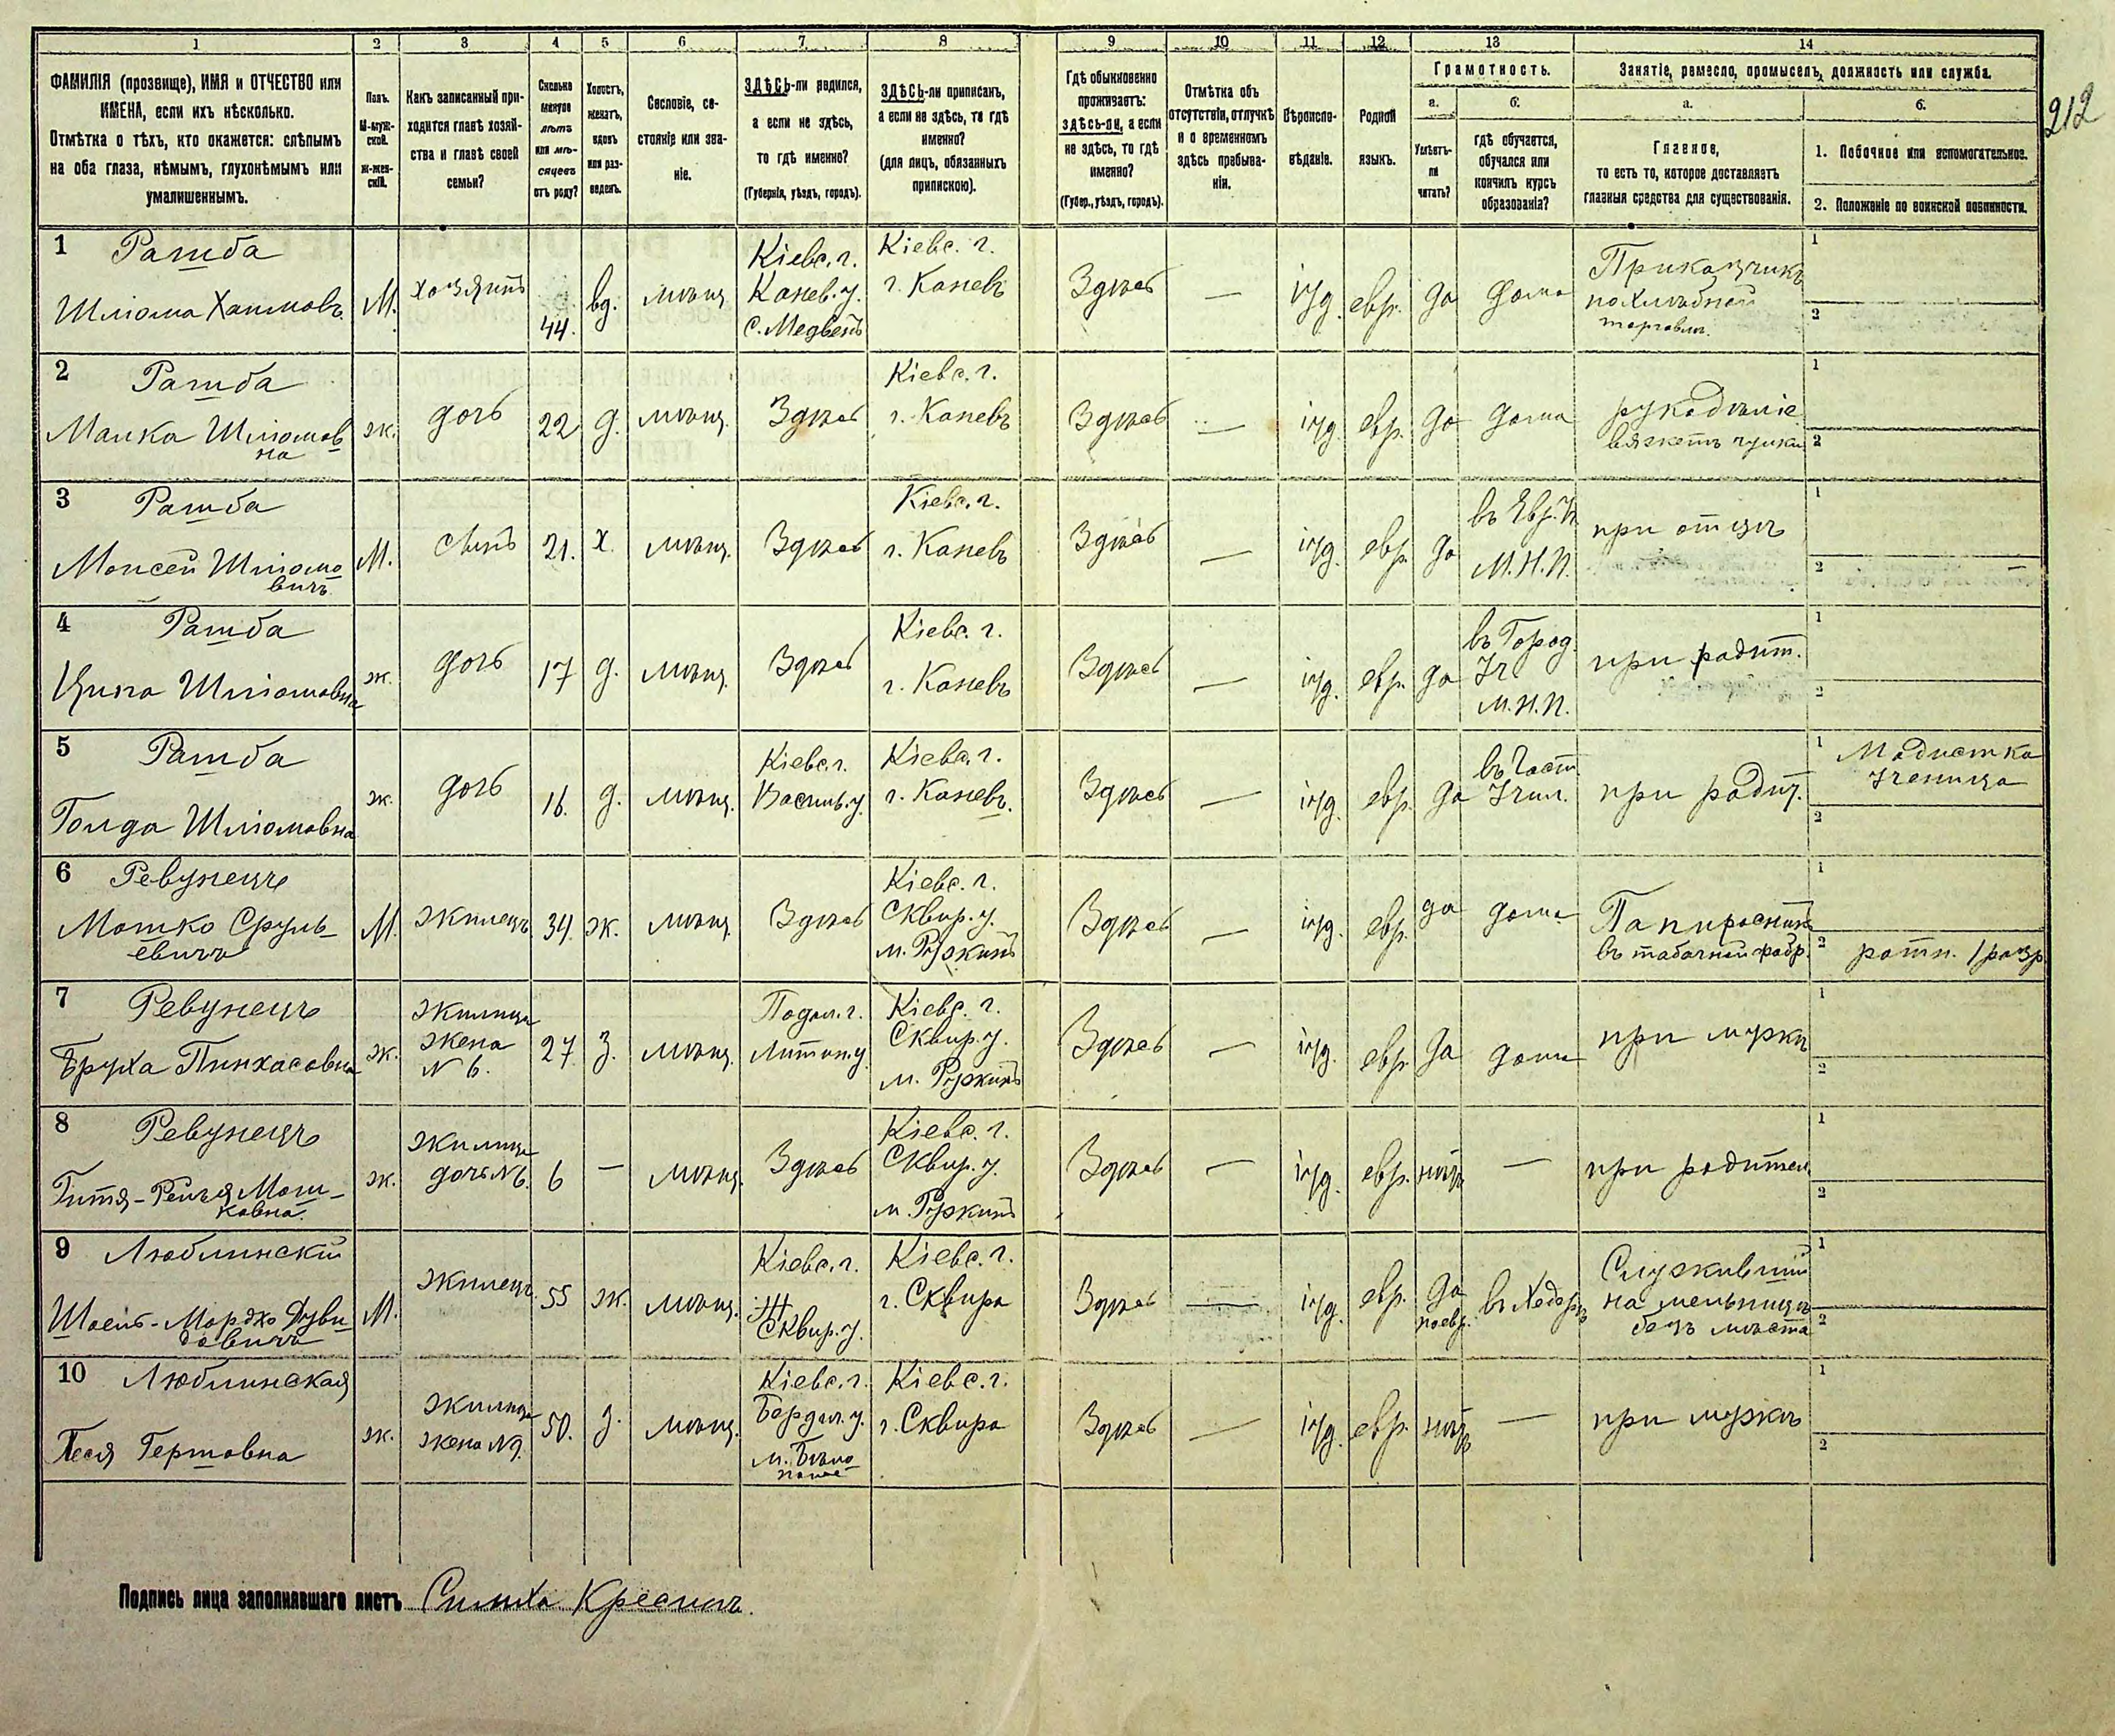 212
1 2 3 4 5 6 7 8 9 10 11 12 13 14
ФАМИЛІЯ (прозвище), ИМЯ и ОТЧЕСТВО или
ИМЕНА, если ихъ нѣсколько.
Отмѣтка о тѣхъ, кто окажется: слѣпымъ
на оба глаза, нѣмымъ, глухонѣмымъ или
умалишеннымъ.
Полъ.
М-муж-
ской.
Ж-жен-
скій.
Какъ записанный при-
ходится главѣ хозяй-
ства и главѣ своей
семьи?
Сколько
минуло
лѣтъ
или мѣ-
сяцевъ
отъ роду?
Холостъ,
женатъ,
вдовъ
или раз-
веденъ.
Сословіе, со-
стояніе или зва-
ніе.
ЗДѢСЬ-ли родился,
а если не здѣсь,
то гдѣ именно?
(Губернія, уѣздъ, городъ).
ЗДѢСЬ-ли приписанъ,
а если не здѣсь, то гдѣ
именно?
(для лицъ, обязанныхъ
припискою).
Гдѣ обыкновенно
проживаетъ:
здѣсь-ли, а если
не здѣсь, то гдѣ
именно?
(Губер., уѣздъ, городъ).
Отмѣтка объ
отсутствіи, отлучкѣ
и о временномъ
здѣсь пребыва-
ніи.
Вѣроиспо-
вѣданіе.
Родной
языкъ.
Грамотность.
а.
Умѣетъ-
ли
читать?
б.
гдѣ обучается,
обучался или
кончилъ курсъ
образованія?
Занятіе, ремесло, промыселъ, должность или служба.
а.
Главное,
то есть то, которое доставляетъ
главныя средства для существованія.
б.
1. Побочное или вспомогательное.
2. Положеніе по воинской повинности.
1 Ратба
Шліома Хаимовъ
М.
хозяинъ
44.
вд.
мѣщ.
Кіевс. г.
Канев. у.
с. Медвенъ
Кіевс. г.
г. Каневъ
Здѣсь
—
іуд.
евр.
да
дома
Приказчикъ
по хлѣбной
торговли.
1
2
2 Ратба
Малка Шліомов
на
ж.
дочь
22
д.
мѣщ.
Здѣсь
Кіевс. г.
г. Каневъ
Здѣсь
—
іуд.
евр.
да
дома
рукодѣліе
вяжетъ чулки
1
2
3 Ратба
Моисей Шліомо
вичъ
М.
сынъ
21.
х.
мѣщ.
Здѣсь
Кіевс. г.
г. Каневъ
Здѣсь
—
іуд.
евр.
да
въ Евр. Уч.
М. Н. П.
при отцѣ
1
2
4 Ратба
Ципа Шліомовна
ж.
дочь
17
д.
мѣщ.
Здѣсь
Кіевс. г.
г. Каневъ
Здѣсь
—
іуд.
евр.
да
въ Город.
Уч
М. Н. П.
при родит.
1
2
5 Ратба
Голда Шліомовна
ж.
дочь
16.
д.
мѣщ.
Кіевс. г.
Васильк. у.
Кіевс. г.
г. Каневъ.
Здѣсь
—
іуд.
евр.
да
въ Част.
Учил.
при родит.
1 Модистка
ученица
2
6 Ревунецъ
Мошко Сруль-
евичъ
М.
жилецъ
34.
ж.
мѣщ.
Здѣсь
Кіевс. г.
Сквир. у.
м. Ружинъ
Здѣсь
—
іуд.
евр.
да
дома
Папиросникъ
въ табачной фабр.
1
2 ратн. 1 разр.
7 Ревунецъ
Бруха Пинхасовна
ж.
жилица
жена
N 6.
27
з.
мѣщ.
Подол. г.
Литин. у.
Кіевс. г.
Сквир. у.
м. Ружинъ
Здѣсь
—
іуд.
евр.
да
дома
при мужѣ
1
2
8 Ревунецъ
Гитя-Рейзя Мош-
ковна.
ж.
жилица
дочь N 6.
6
—
мѣщ.
Здѣсь
Кіевс. г.
Сквир. у.
м. Ружинъ
Здѣсь
—
іуд.
евр.
нѣтъ
—
при родител.
1
2
9 Люблинскій
Шоель-Мордко Дуви-
довичъ
М.
жилецъ
55
ж.
мѣщ.
Кіевс. г.
Сквир. у.
Кіевс. г.
г. Сквира
Здѣсь
—
іуд.
евр.
да
по евр.
въ Хедерѣ
Служившій
на мельницѣ
безъ мѣста
1
2
10 Люблинская
Песя Гершовна
ж.
жилица
жена N 9.
50.
з.
мѣщ.
Кіевс. г.
Бердич. у.
м. Бѣло
полье
Кіевс. г.
г. Сквира
Здѣсь
—
іуд.
евр.
нѣтъ
—
при мужѣ
1
2
Подпись лица заполнявшаго листъ Симха